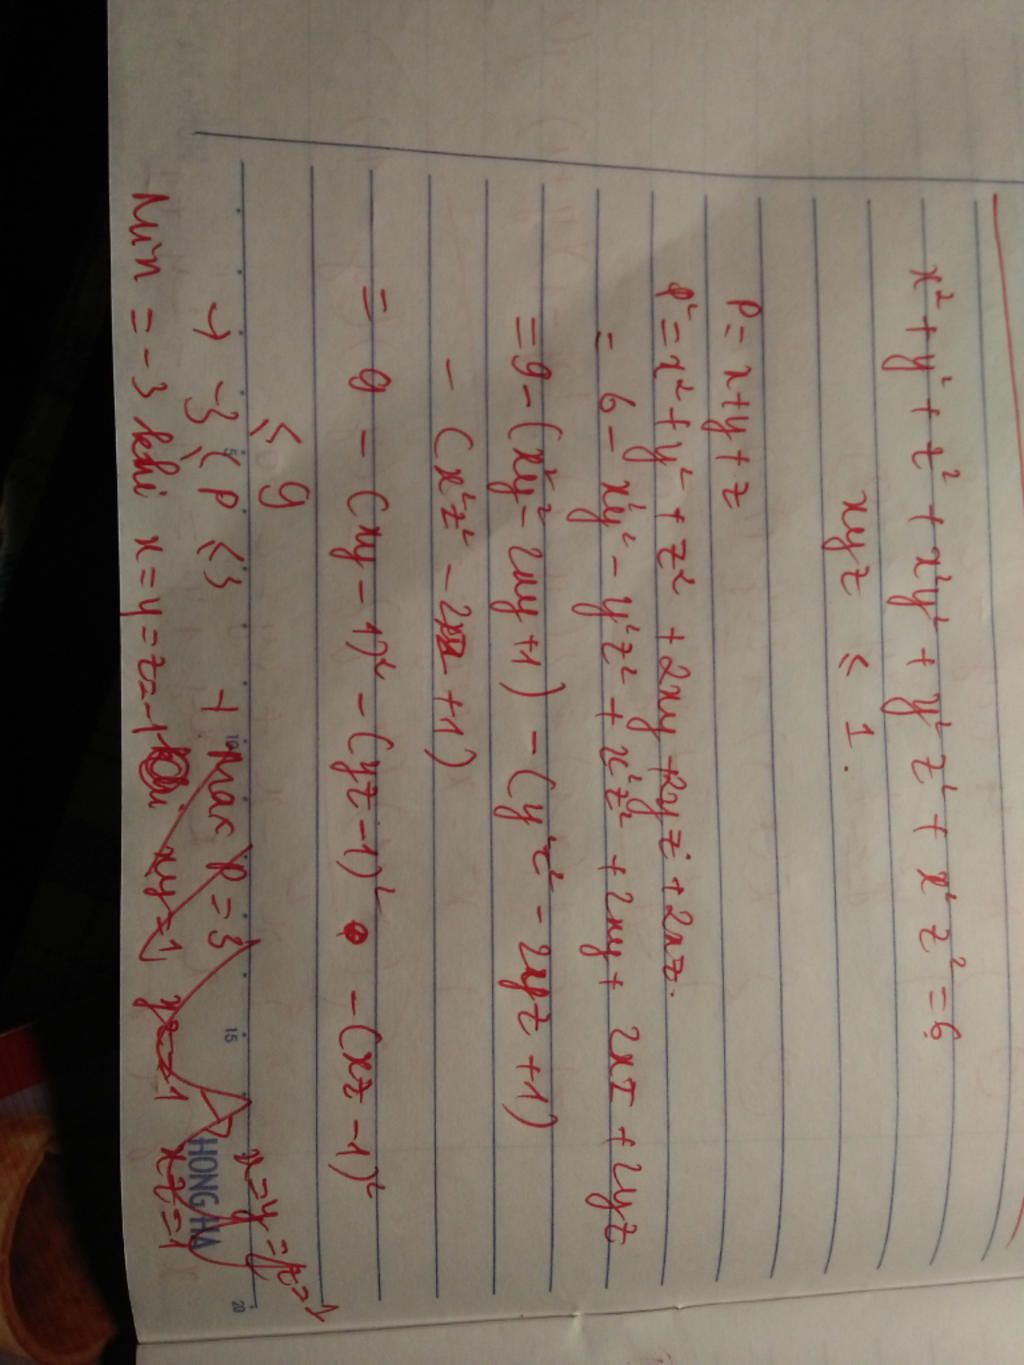 x² + y² + z² + x²y² + y²z² + x²z² = 6
xyz ≤ 1.
P = x+y+z
P² = x² + y² + z² + 2xy + 2yz + 2xz.
= 6 - x²y² - y²z² + x²z² + 2xy + 2xz + 2yz
= 9 - (x²y² - 2xy + 1) - (y²z² - 2yz + 1)
- (x²z² - 2xz + 1)
= 9 - (xy - 1)² - (yz - 1)² - (xz - 1)²
≤ 9
→ -3 ≤ P ≤ 3 → Max P = 3 x = y = z = 1
Min = -3 khi x = y = z = -1 khi xy = 1 yz = 1 xz = 1
HONG HA
5 10 15 20